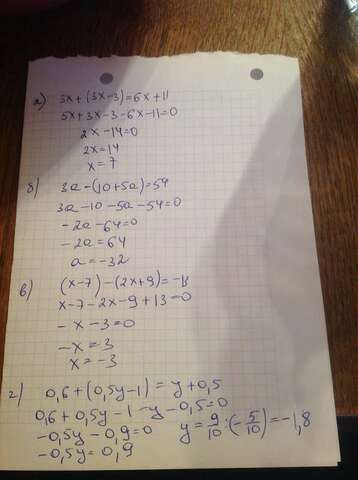 а) 5x+(3x-3)=6x+11
5x+3x-3-6x-11=0
2x-14=0
2x=14
x=7
б) 3a-(10+5a)=54
3a-10-5a-54=0
-2a-64=0
-2a=64
a=-32
в) (x-7)-(2x+9)=-13
x-7-2x-9+13=0
-x-3=0
-x=3
x=-3
г) 0,6+(0,5y-1)=y+0,5
0,6+0,5y-1-y-0,5=0
-0,5y-0,9=0 y=9/10:(-5/10)=-1,8
-0,5y=0,9